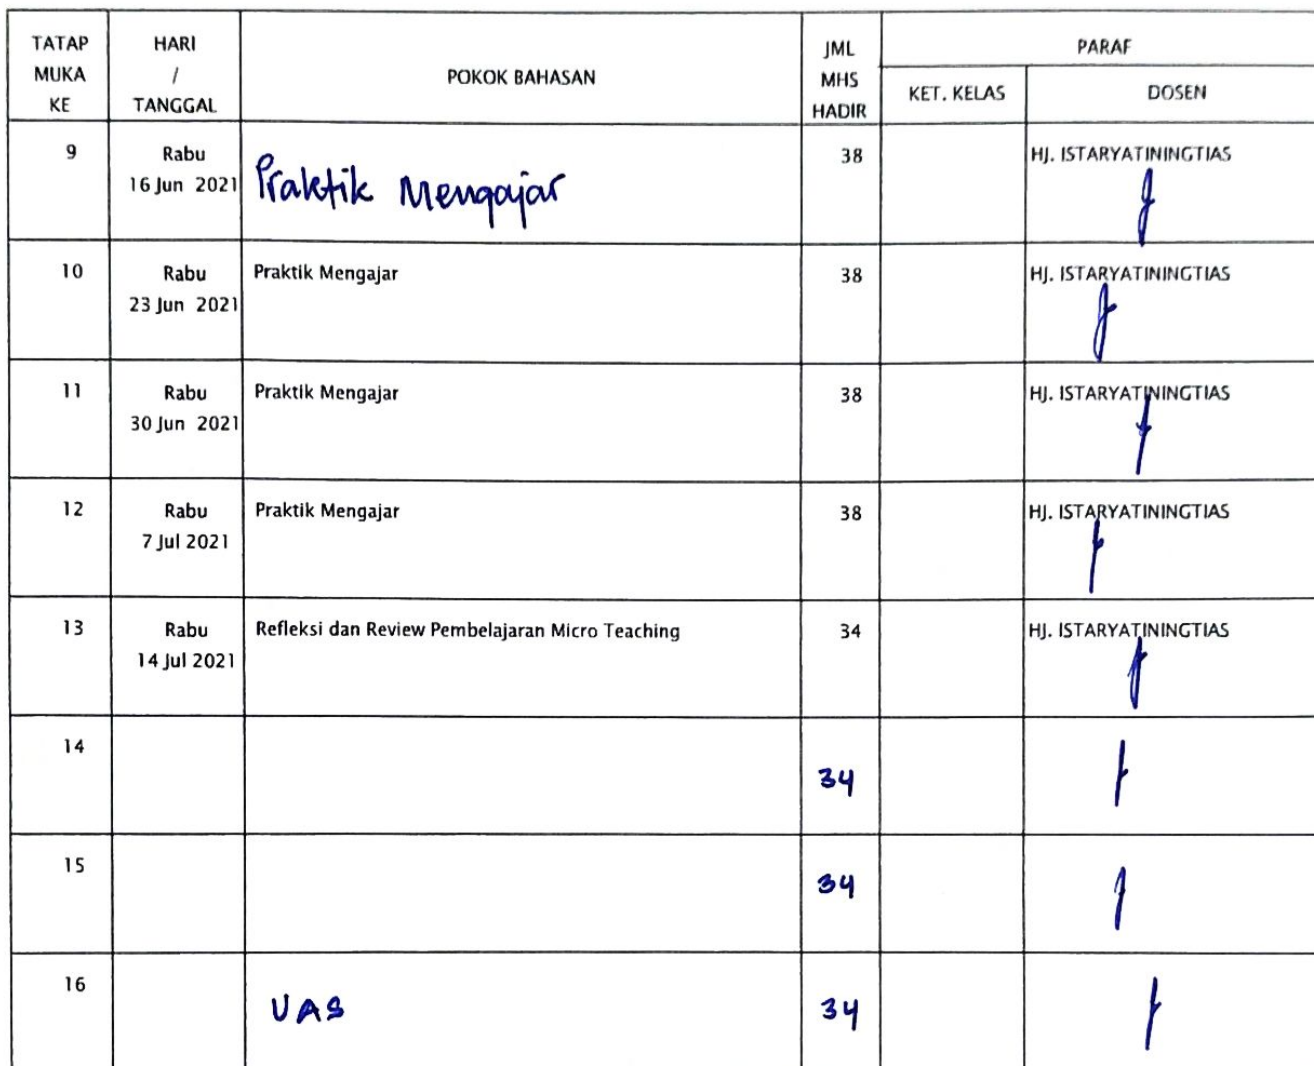 TATAP MUKA KE
HARI / TANGGAL
POKOK BAHASAN
JML MHS HADIR
PARAF
KET. KELAS
DOSEN
9
Rabu
16 Jun 2021
Praktik Mengajar
38
HJ. ISTARYATININGTIAS
10
Rabu
23 Jun 2021
Praktik Mengajar
38
HJ. ISTARYATININGTIAS
11
Rabu
30 Jun 2021
Praktik Mengajar
38
HJ. ISTARYATININGTIAS
12
Rabu
7 Jul 2021
Praktik Mengajar
38
HJ. ISTARYATININGTIAS
13
Rabu
14 Jul 2021
Refleksi dan Review Pembelajaran Micro Teaching
34
HJ. ISTARYATININGTIAS
14
34
15
34
16
UAS
34